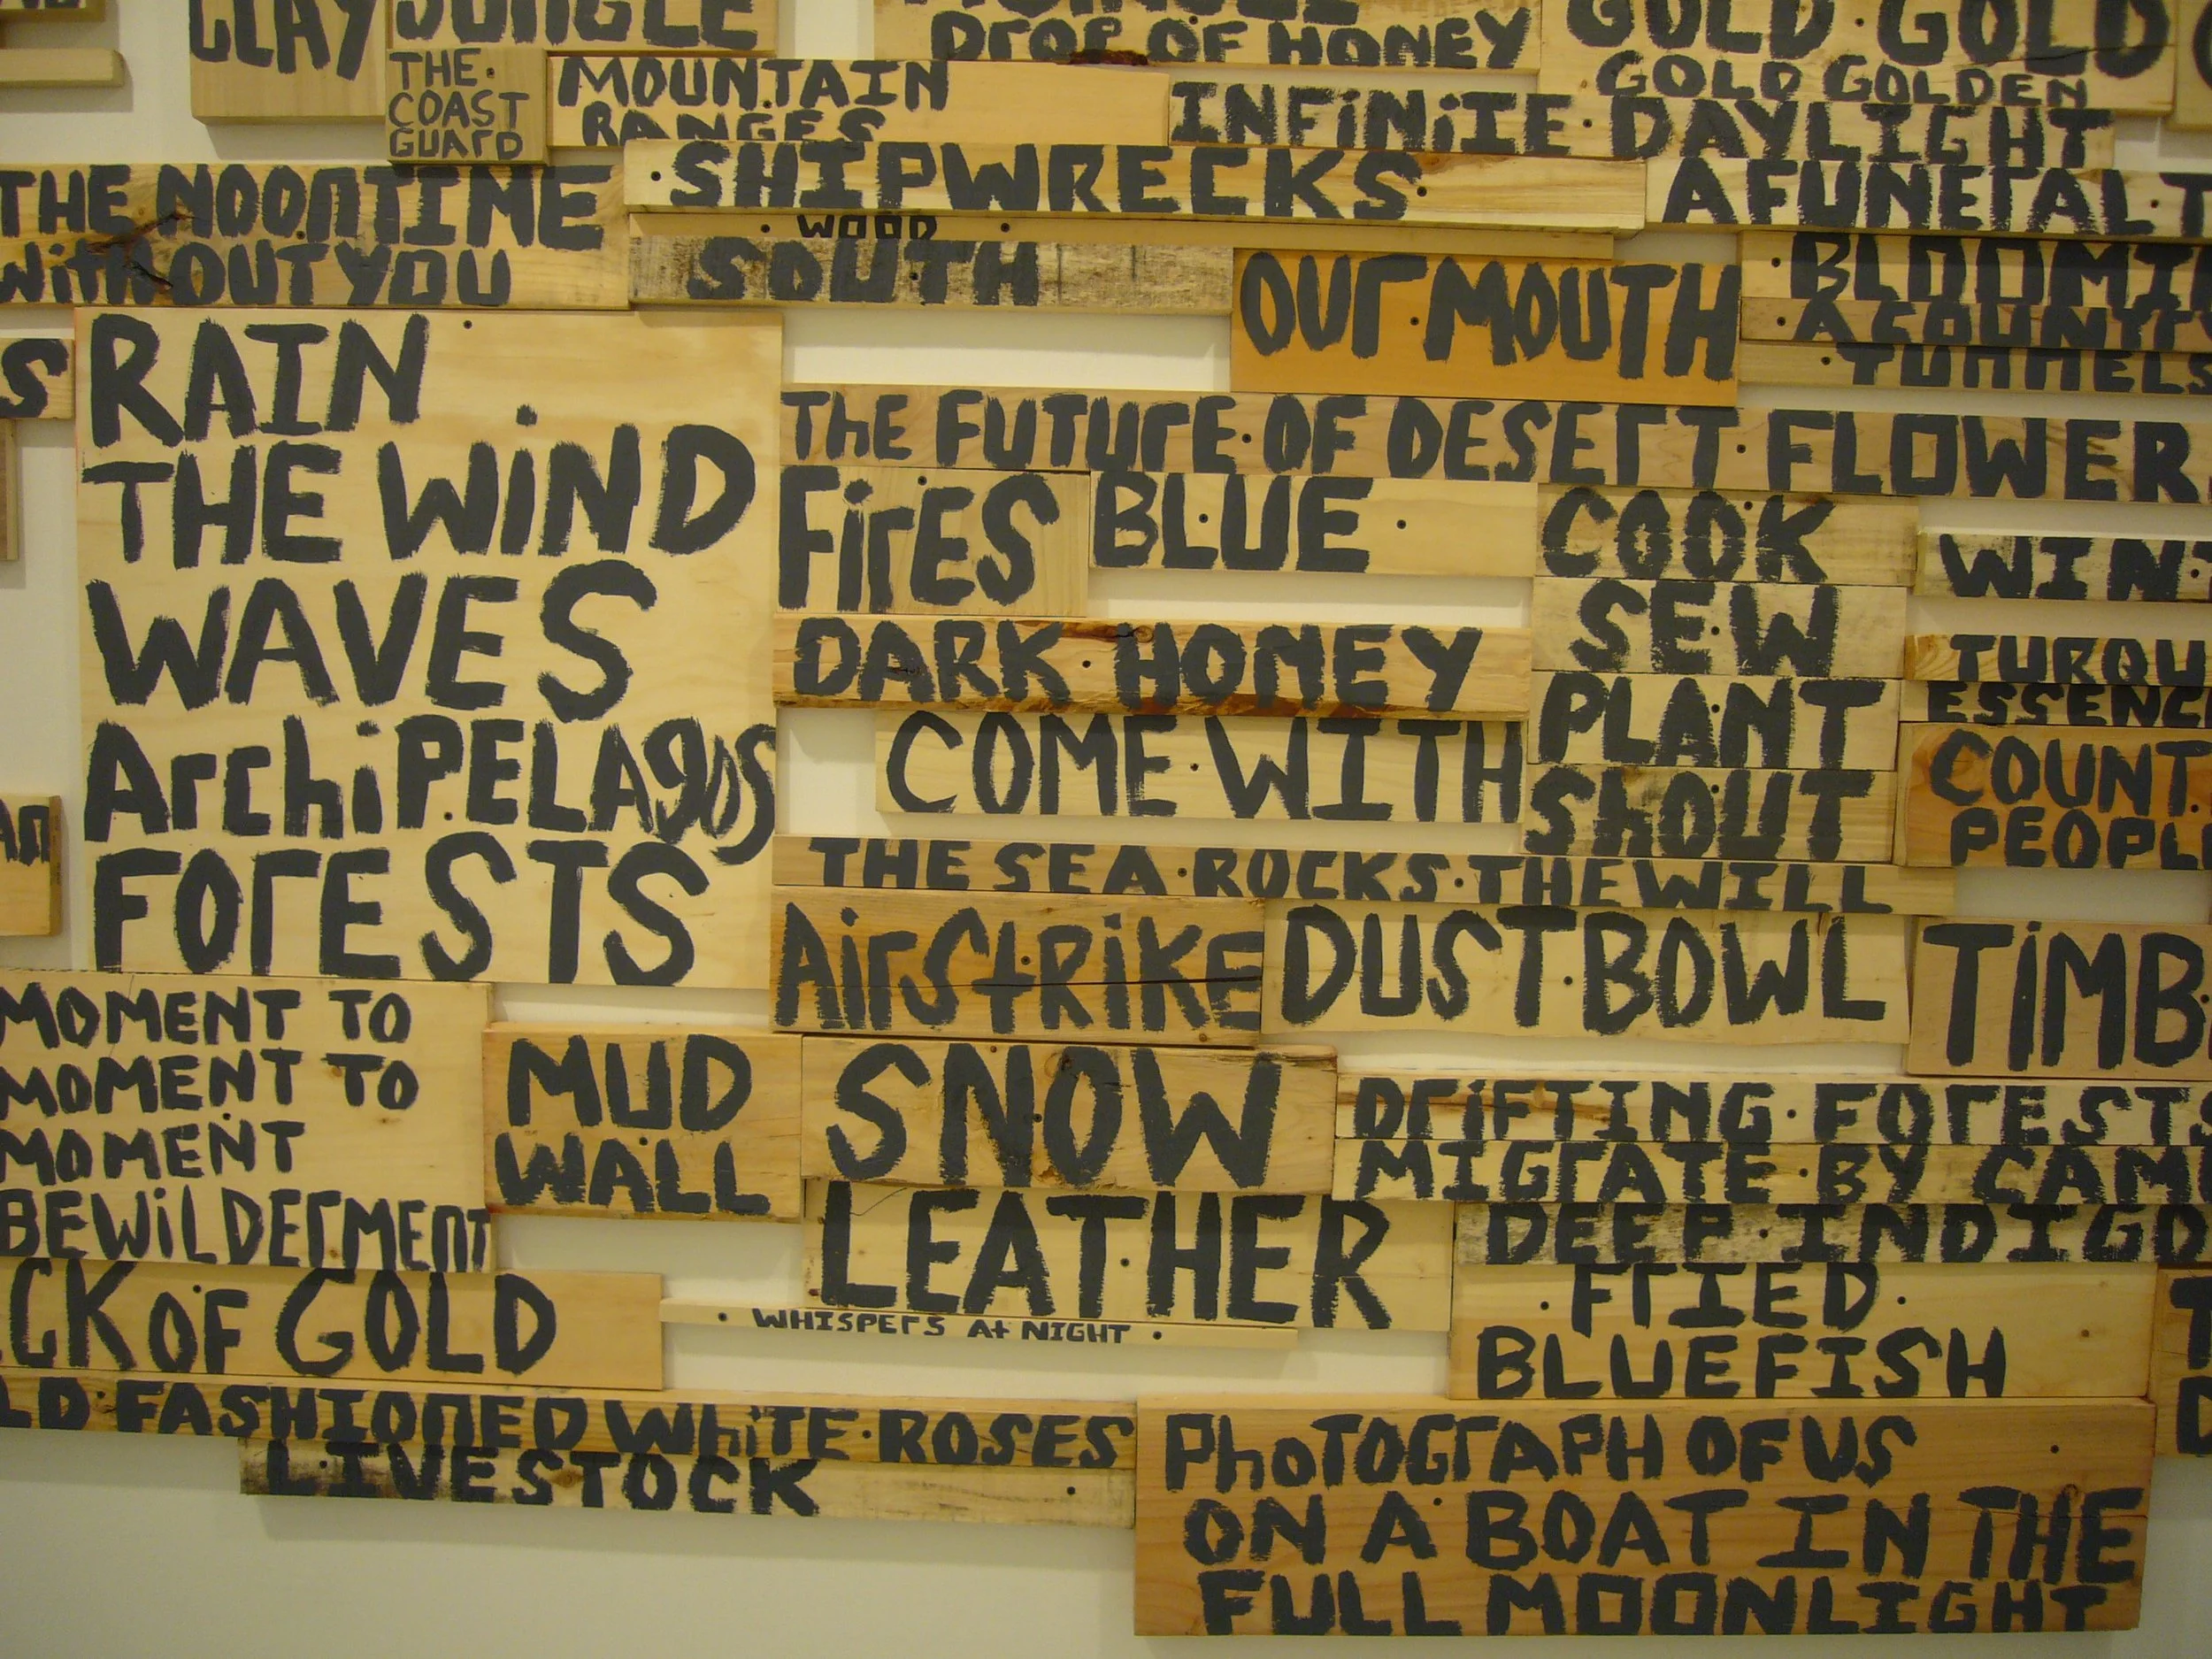 CLAY
JUNGLE
DROP OF HONEY
GOLD GOLD
GOLD GOLDEN
THE
COAST
GUARD
MOUNTAIN
RANGES
INFINITE DAYLIGHT
SHIPWRECKS
A FUNERAL
THE NOONTIME
WITHOUT YOU
WOOD
SOUTH
OUR MOUTH
TUNNELS
RAIN
THE WIND
WAVES
ArchiPELAgOS
FORESTS
THE FUTURE OF DESERT FLOWER
FIRES
BLUE
COOK
SEW
PLANT
ShOUT
DARK HONEY
COME WITH
COUNT
THE SEA ROCKS THE WILL
AIRStRIKE
DUST BOWL
MOMENT TO
MOMENT TO
MOMENT
BEWILDERMENT
MUD
WALL
SNOW
LEATHER
DRIFTING FORESTS
MIGRATE BY
DEEP INDIGO
FRIED
BLUEFISH
OF GOLD
WHISPERS At NIGHT
FASHIONED WhiTE ROSES
LIVESTOCK
PhoTOGRAPH OF US
ON A BOAT IN THE
FULL MOONLIGHT